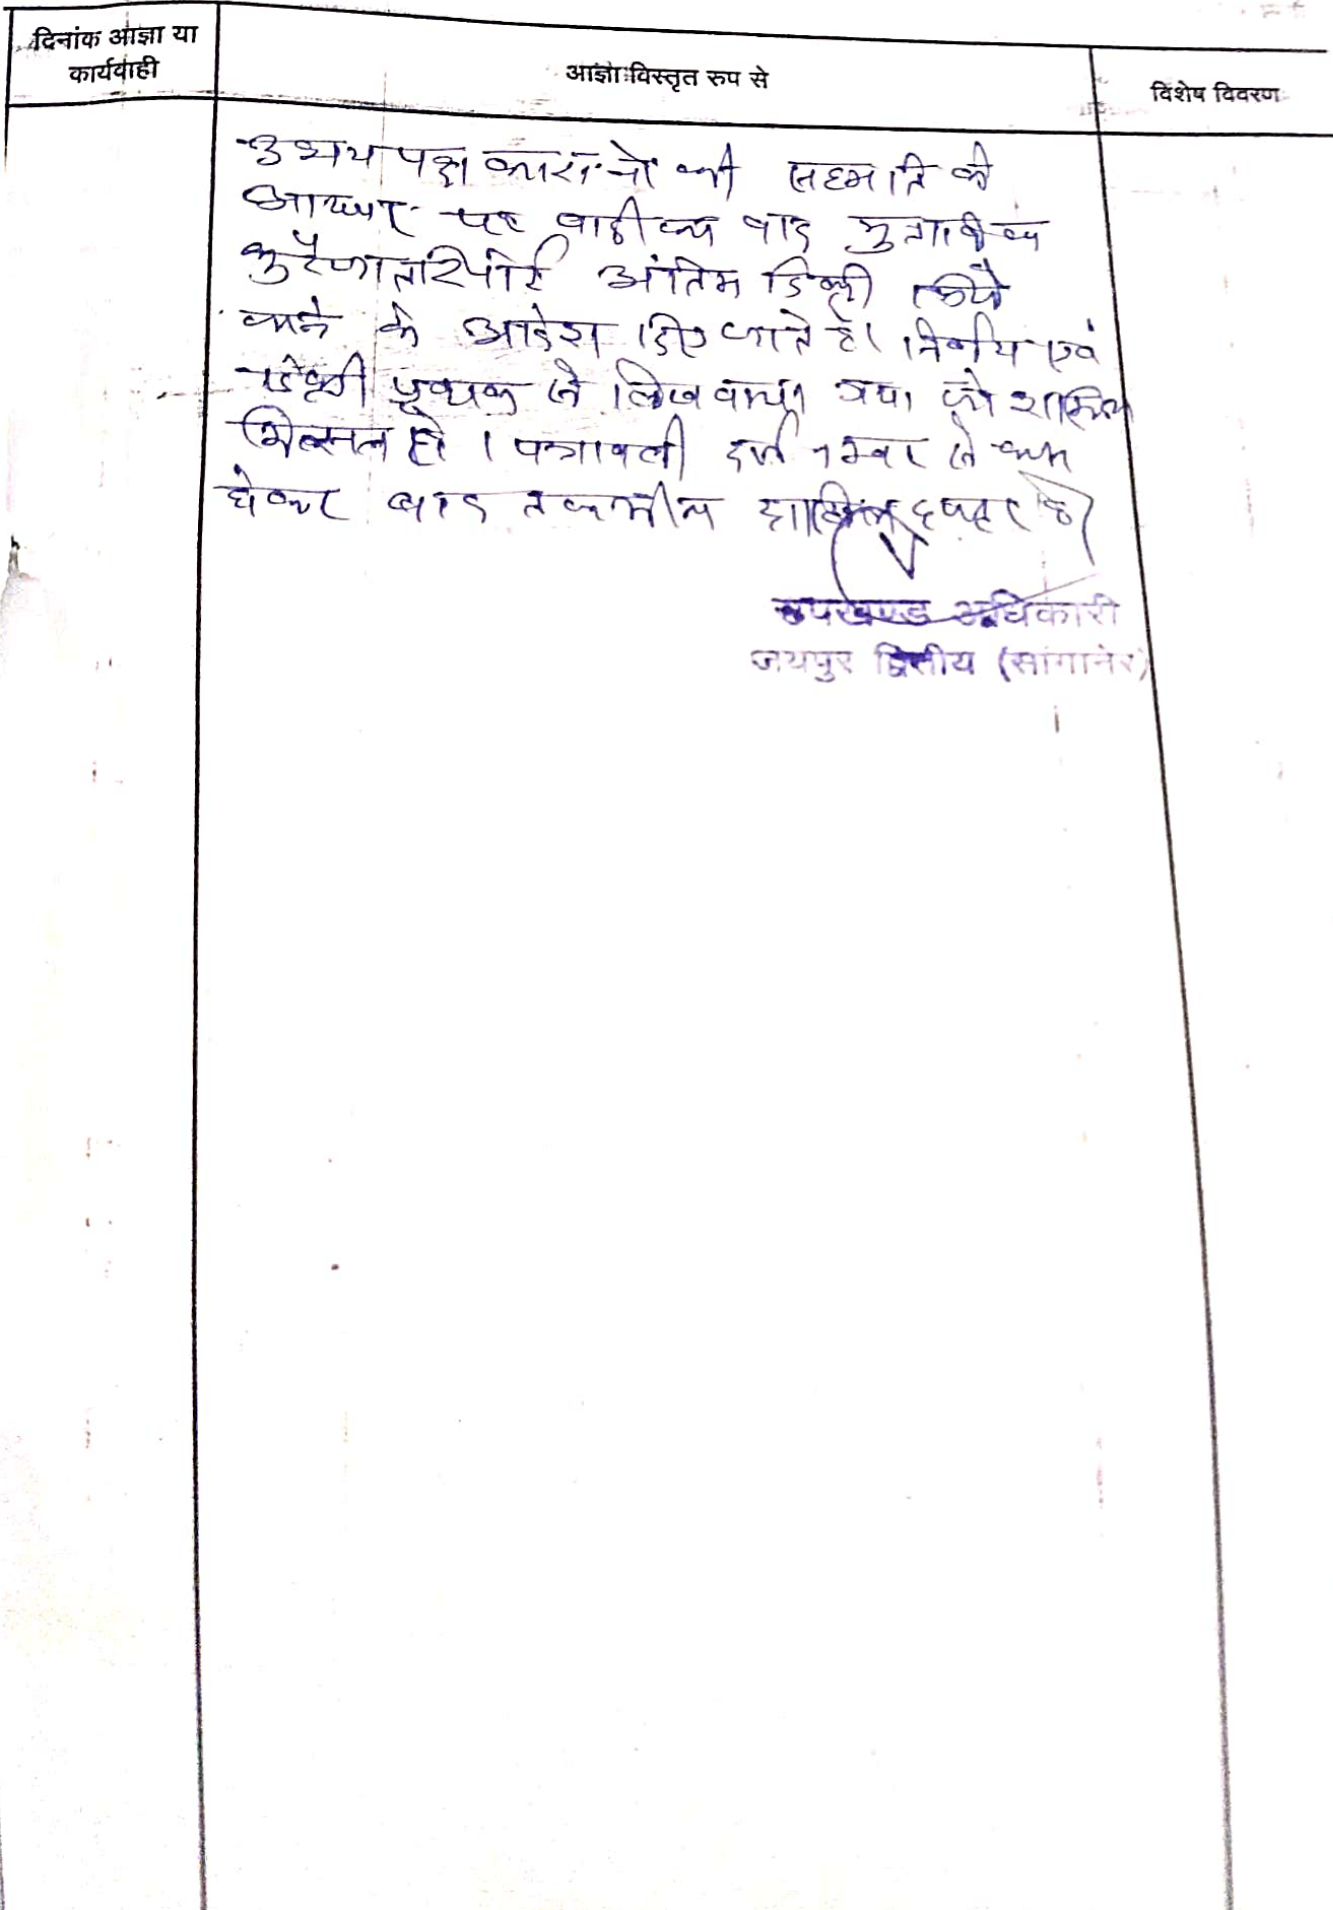 दिनांक आज्ञा या
कार्यवाही
आज्ञा विस्तृत रुप से
विशेष विवरण
उभय पक्षकारानो की सहमति के
आधार पर वादी का वाद मुताबिक
कुर्रेजात रिपोर्ट अंतिम डिक्री किये
जाने के आदेश दिए जाते है। निर्णय एवं
डिक्री पृथक से लिखवाया गया जो शामिल
मिसल हो। पत्रावली दर्ज नम्बर से कम
होकर बाद तकमील दाखिल दफ्तर हो
उपखण्ड अधिकारी
जयपुर द्वितीय (सांगानेर)